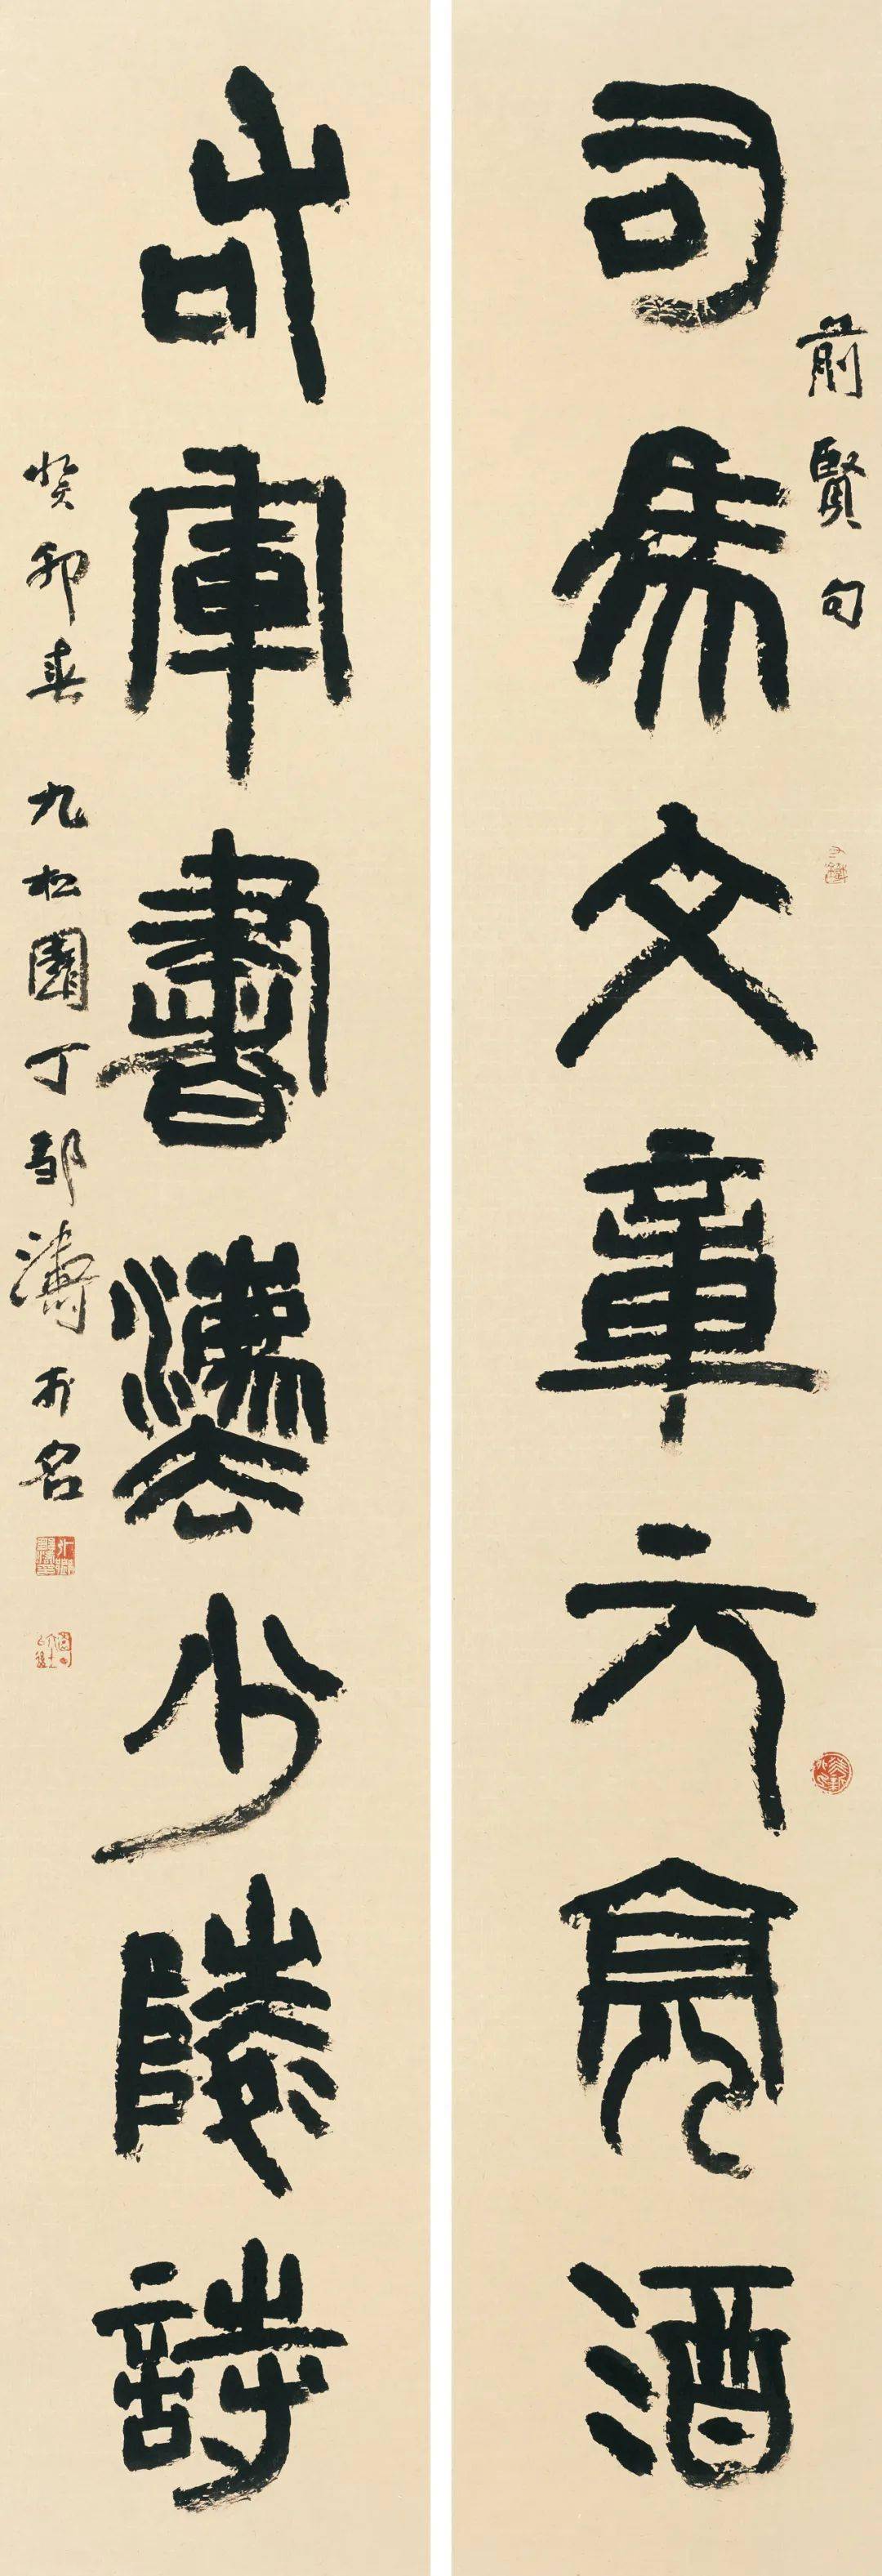 前賢句
司馬文章元亮酒
右軍書灋少陵詩
癸卯春 九松園丁鄒濤